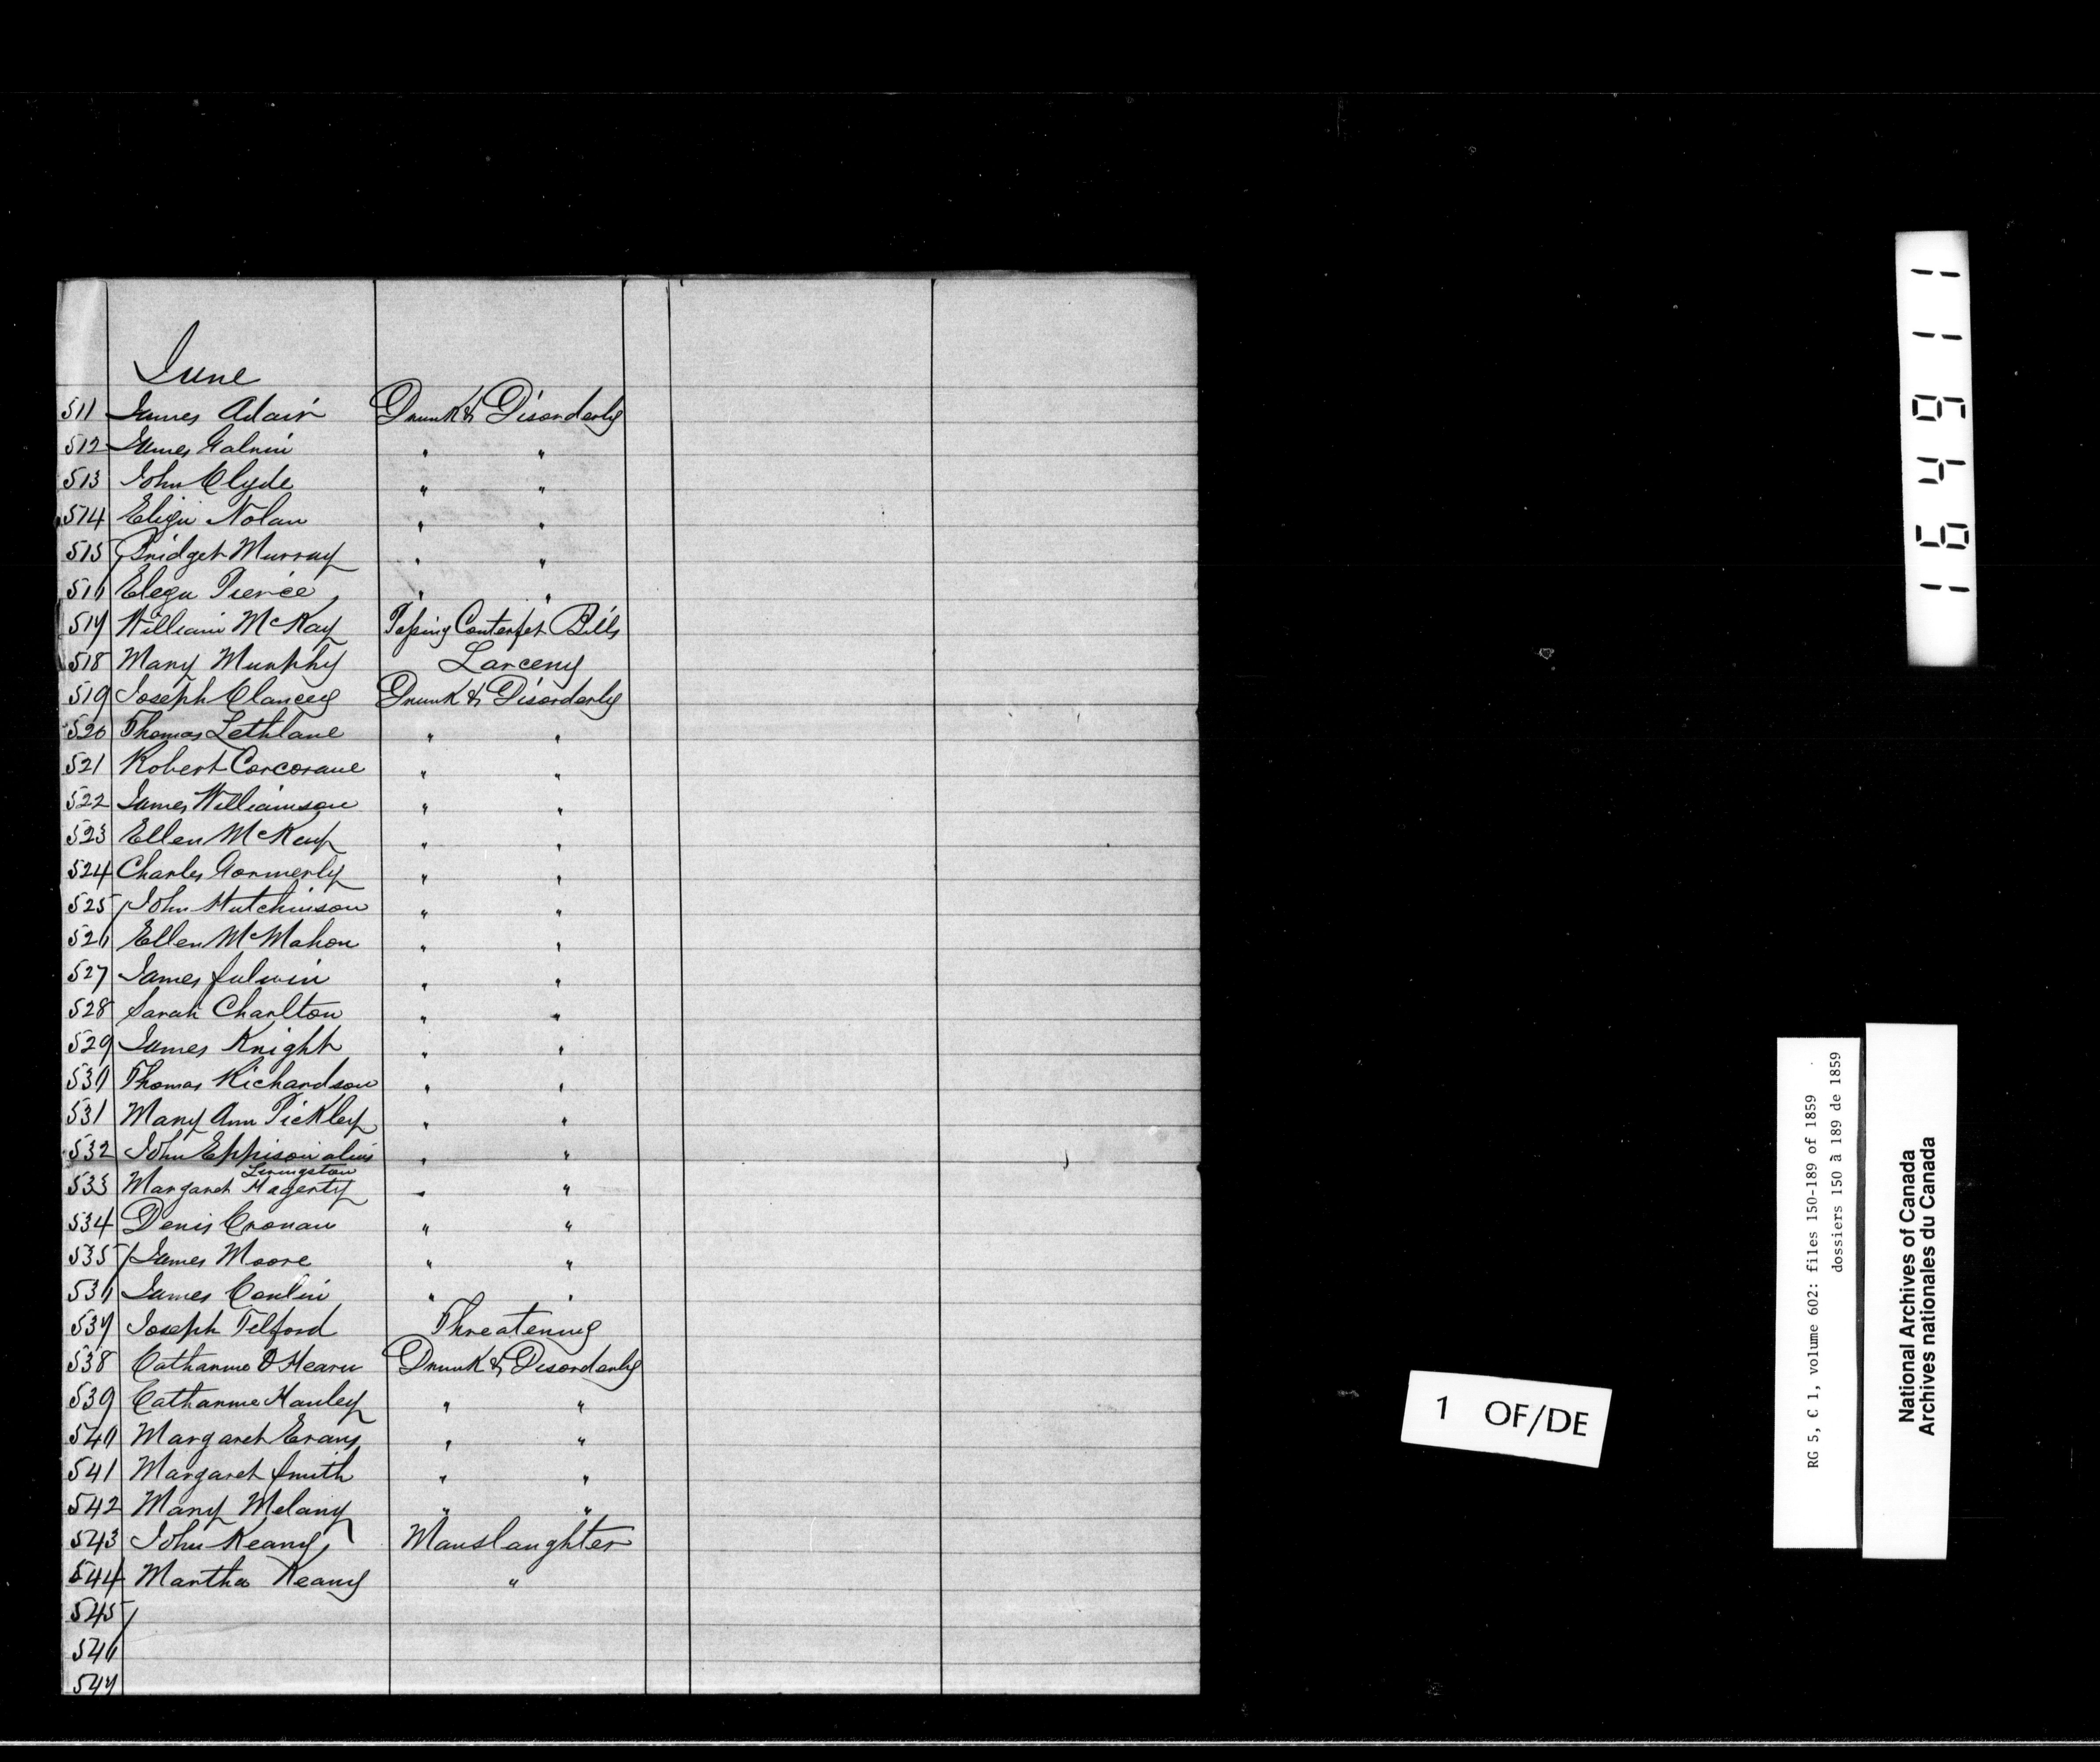 June
511 James Adair Drunk & Disorderly
512 James Galvin " "
513 John Clyde " "
514 Eliza Nolan " "
515 Bridget Murray " "
516 Eleza Pierce " "
517 William McKay Passing Conterfet Bills
518 Mary Murphy Larceny
519 Joseph Clancey Drunk & Disorderly
520 Thomas Lethlane " "
521 Robert Corcorane " "
522 James Williamson " "
523 Ellen McKay " "
524 Charles Gormerly " "
525 John Hutchinson " "
526 Ellen McMahon " "
527 James " "
528 Sarah Charlton " "
529 James Knight " "
530 Thomas Richardson " "
531 Mary Ann Pickley " "
532 John Eppison alias " "
Livingston
533 Margaret Hagerty " "
534 Denis Cronan " "
535 James Moore " "
536 James Conlin " "
537 Joseph Telford Threatening
538 Catharine O Hearn Drunk & Disorderly
539 Catharine Hanley " "
540 Margaret Evans " "
541 Margaret Smith " "
542 Mary Melany " "
543 John Keany Manslaughter
544 Martha Keany "
545
546
547
164911
1 OF/DE
RG 5, C 1, volume 602: files 150-189 of 1859
dossiers 150 à 189 de 1859
National Archives of Canada
Archives nationales du Canada